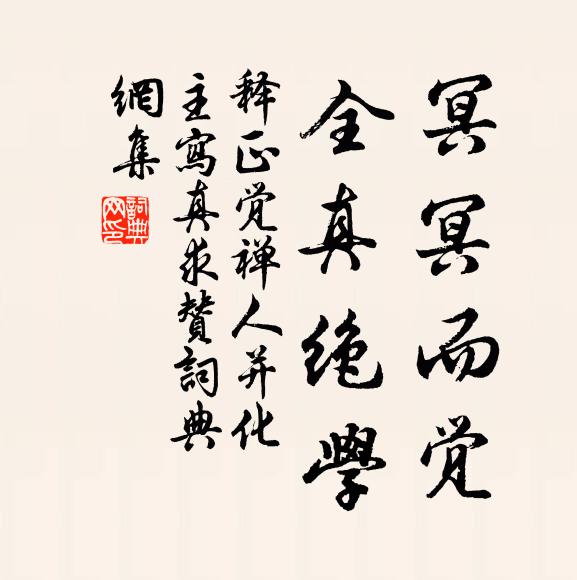 冥冥而觉
全真绝學
释正觉禅人并化
主寫真求贊詞典
網集
詞典网印